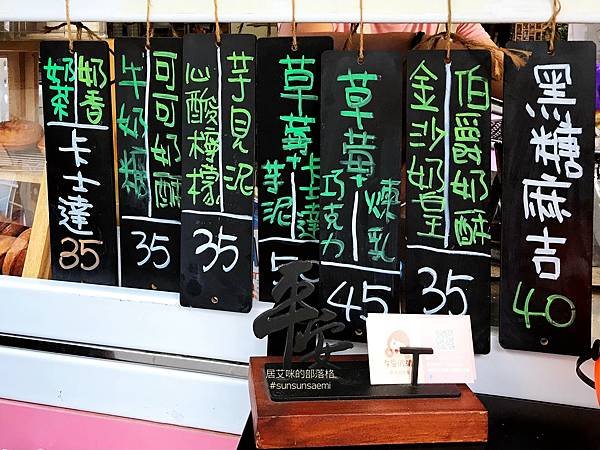 奶香
奶茶
卡士達
35
可可奶酥
牛奶糖
35
芋見泥
心酸檸檬
35
草莓卡士達
芋泥
5
草莓
煉乳
巧克力
45
伯爵奶酥
金沙奶皇
35
黑糖麻吉
40
平安
居艾咪的部落格
#sunsunsaemi